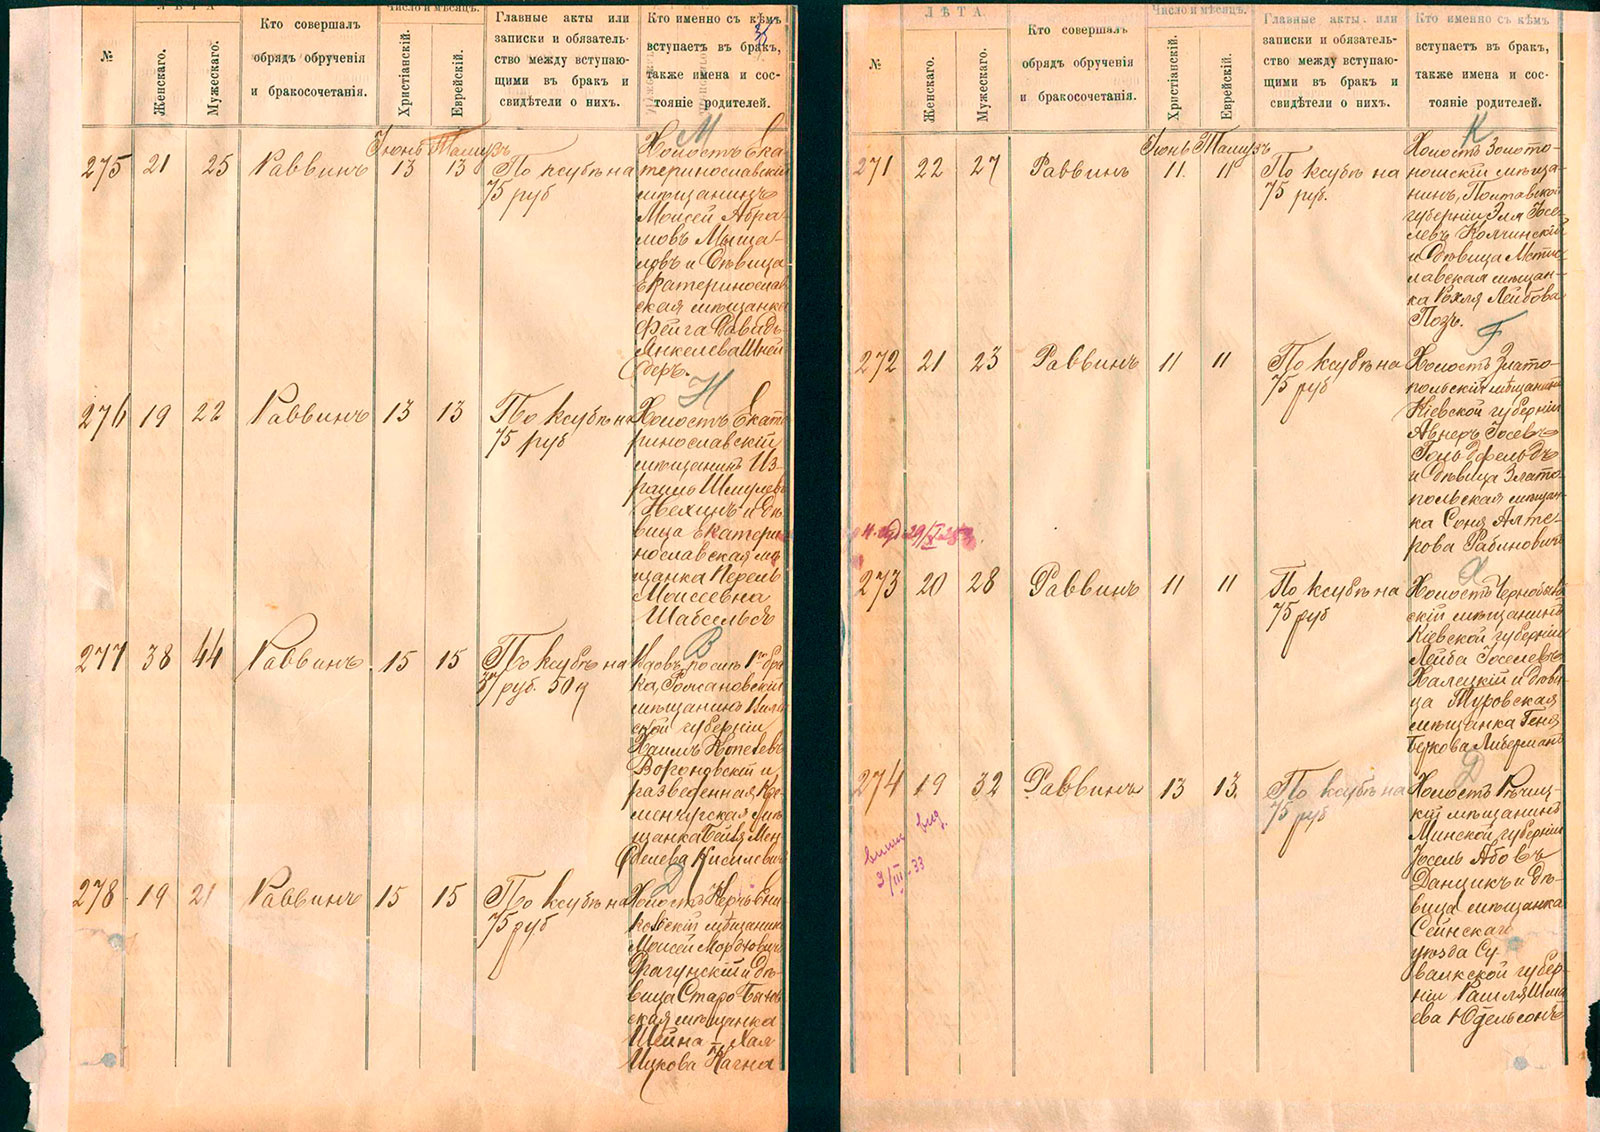 №
ЛѢТА
Женскаго.
Мужескаго.
Кто совершалъ
обрядъ обрученія
и бракосочетанія.
Число и мѣсяцъ.
Христіанскій.
Еврейскій.
Главные акты или
записки и обязатель-
ство между вступаю-
щими въ бракъ и
свидѣтели о нихъ.
Кто именно съ кѣмъ
вступаетъ въ бракъ,
также имена и сос-
тояніе родителей.
М
Іюнь Тамузъ
275 21 25 Раввинъ 13 13 По ксубѣ на
75 руб
Холостъ Ека
теринославскій
мѣщанинъ
Моисей Абра-
мовъ Мыша-
ловъ и дѣвица
Екатеринослав
ская мѣщанка
Фейга Давидъ-
Янкелева Шней
деръ.
Н
276 19 22 Раввинъ 13 13 По ксубѣ на
75 руб
Холостъ Екате
ринославскій
мѣщанинъ Из-
раиль Шмулевъ
Нехинъ и дѣ
вица Екатери
нославская мѣ
щанка Перель
Моисеевна
В
277 38 44 Раввинъ 15 15 По ксубѣ на
37 руб. 50 к
Вдовъ послѣ 1го бра
ка, Романовскій
мѣщанинъ
ской губерніи
Хаимъ Копелевъ
Вороновскій и
разведенная Кре-
менчугская мѣ
щанка Бейля Мен
делева
Д
278 19 21 Раввинъ 15 15 По ксубѣ на
75 руб
Холостъ
мѣщанинъ
Моисей Мордковъ
и дѣ-
вица Старо-Быхов
ская мѣщанка
Шейна-Хая
Ицкова Кагна
№
ЛѢТА.
Женскаго.
Мужескаго.
Кто совершалъ
обрядъ обрученія
и бракосочетанія.
Число и мѣсяцъ.
Христіанскій.
Еврейскій.
Главные акты или
записки и обязатель-
ство между вступаю-
щими въ бракъ и
свидѣтели о нихъ.
Кто именно съ кѣмъ
вступаетъ въ бракъ,
также имена и сос-
тояніе родителей.
К
Іюнь Тамузъ
271 22 27 Раввинъ 11. 11 По ксубѣ на
75 руб.
Холостъ Золото-
ношскій мѣща
нинъ, Полтавской
губерніи Эля Іосе-
левъ Колчинскій
и дѣвица Мстис
лавская мѣщан-
ка Рохля Лейбова
Позъ.
Г
272 21 23 Раввинъ 11 11 По ксубѣ на
75 руб
Холостъ Злато-
польскій мѣщанинъ
Кіевской губерніи
Авнеръ Іосевъ
Гольдфельдъ
и дѣвица Злато-
польская мѣщан-
ка Соня Алте-
рова Рабиновичъ
Х
273 20 28 Раввинъ 11 11 По ксубѣ на
75 руб
Холостъ Чернобыль
скій мѣщанинъ
Кіевской губерніи
Лейба Іоселевъ
Халецкій и дѣви
ца Туровская
мѣщанка Геня
Беркова Либерманъ
Д
274 19 32 Раввинъ 13 13. По ксубѣ на
75 руб
Холостъ Рѣчиц-
кій мѣщанинъ
Минской губерніи
Іосель Абовъ
Данцикъ и дѣ-
вица мѣщанка
Сейнскаго
уѣзда Су-
валкской губер-
ніи Рашля Шмо
ева Юдельсонъ
вид.
3/III-33